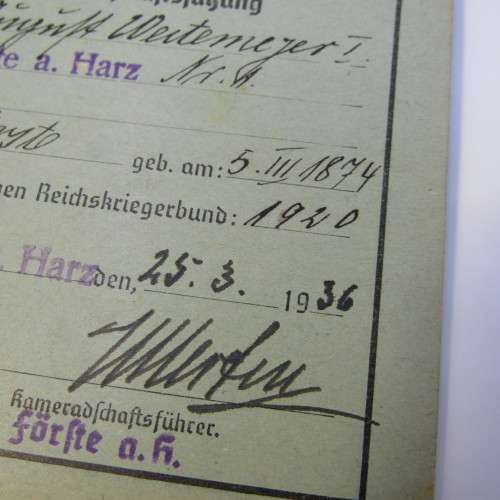 August Weitemeyer I.
te a. Harz Nr. 1.
geb. am: 5. III 1874
en Reichskriegerbund: 1920
. Harz den, 25. 3. 1936
Kameradschaftsführer.
Förste a. H.